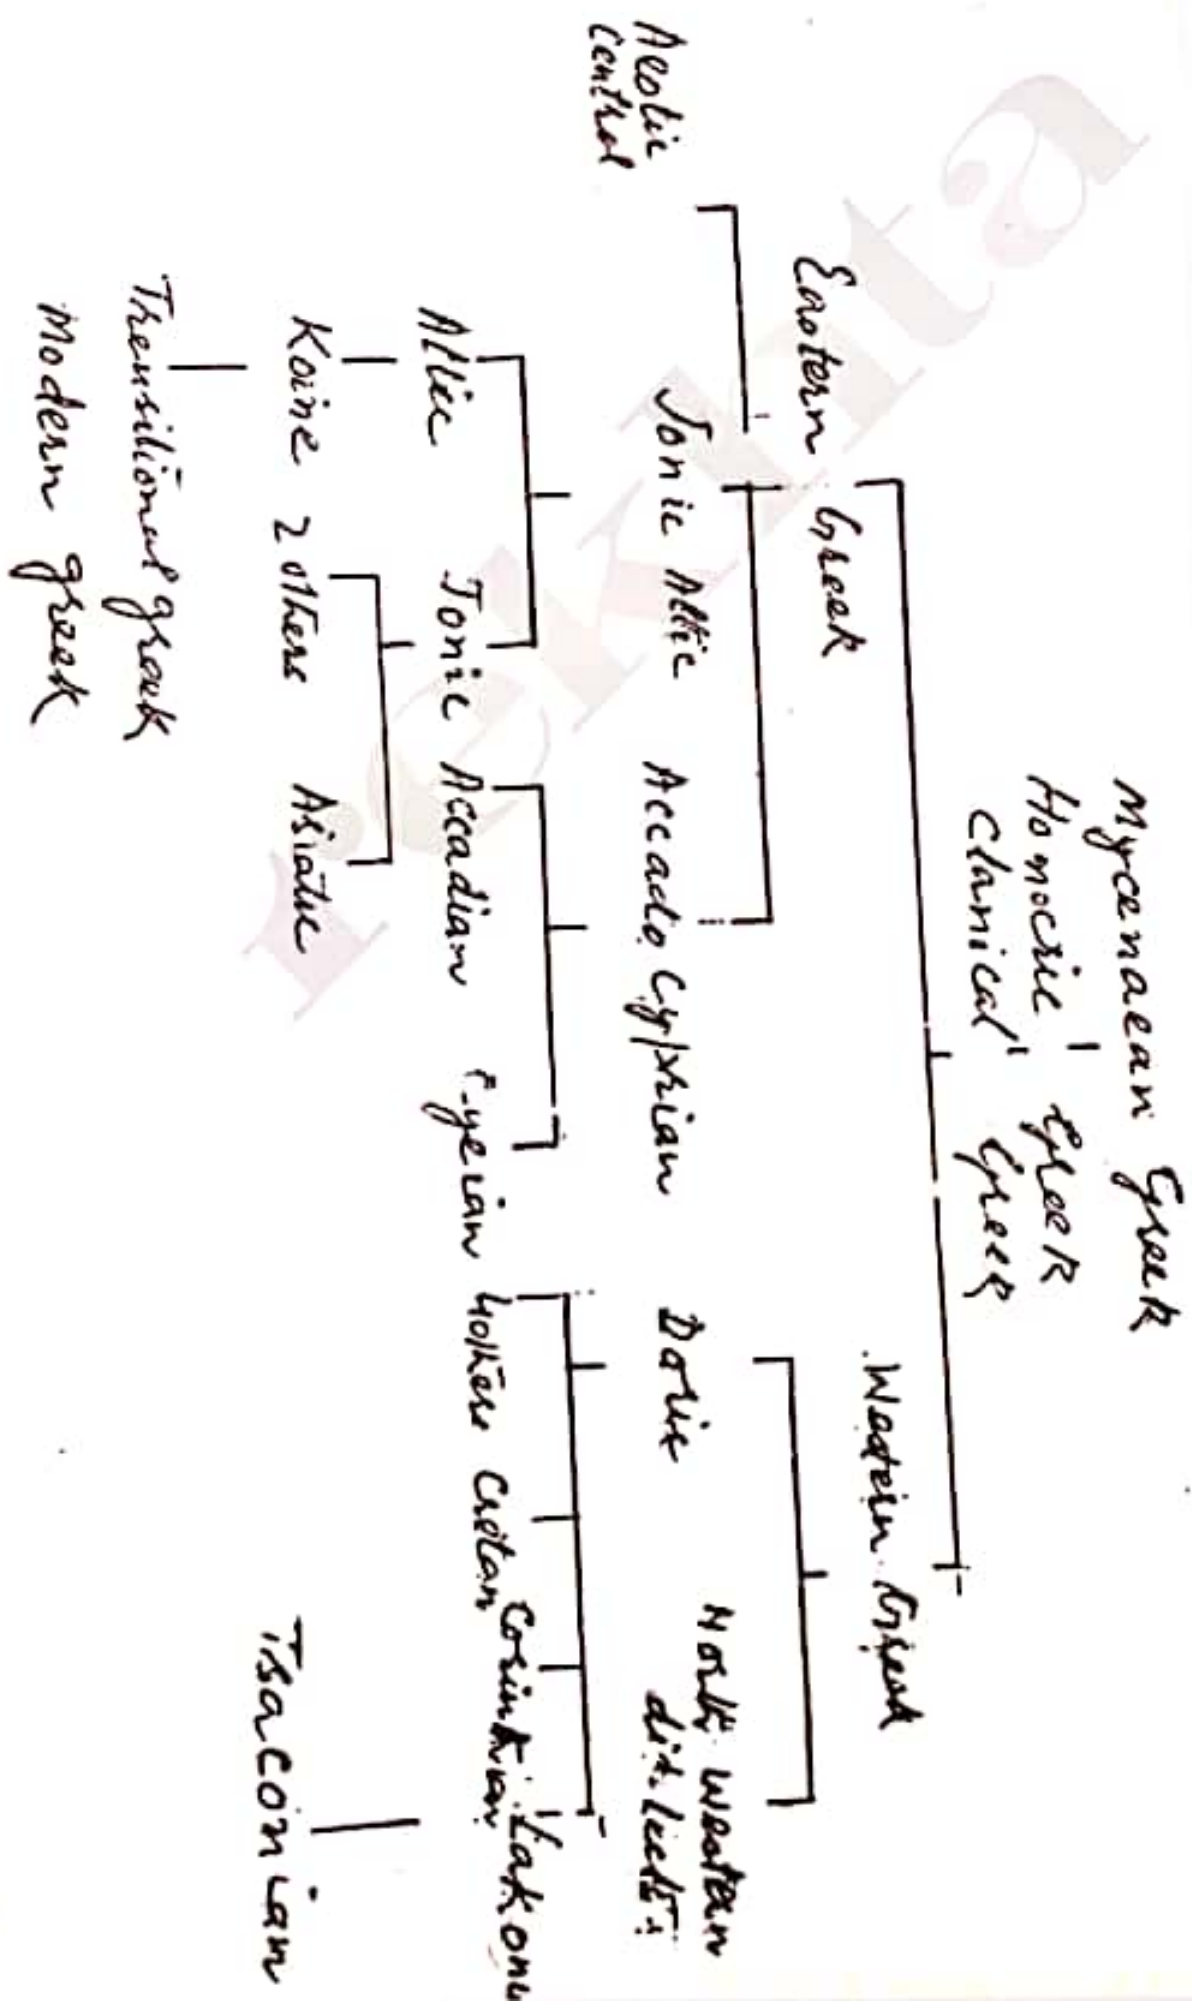 Mycenaean Greek
Homocric Greek
Clanical Greek
Eaotern Greek
Western Greek
Aeolic
central
Ionic Attic
Accado Cyprian
Doric
North Western
dialects
Attic
Ionic
Accadian
Cyerian
4 others
Cretan
Corinthian
Lakonu
Koine
2 others
Asiatic
Tsaconian
Transitional greek
Modern greek
rekhta